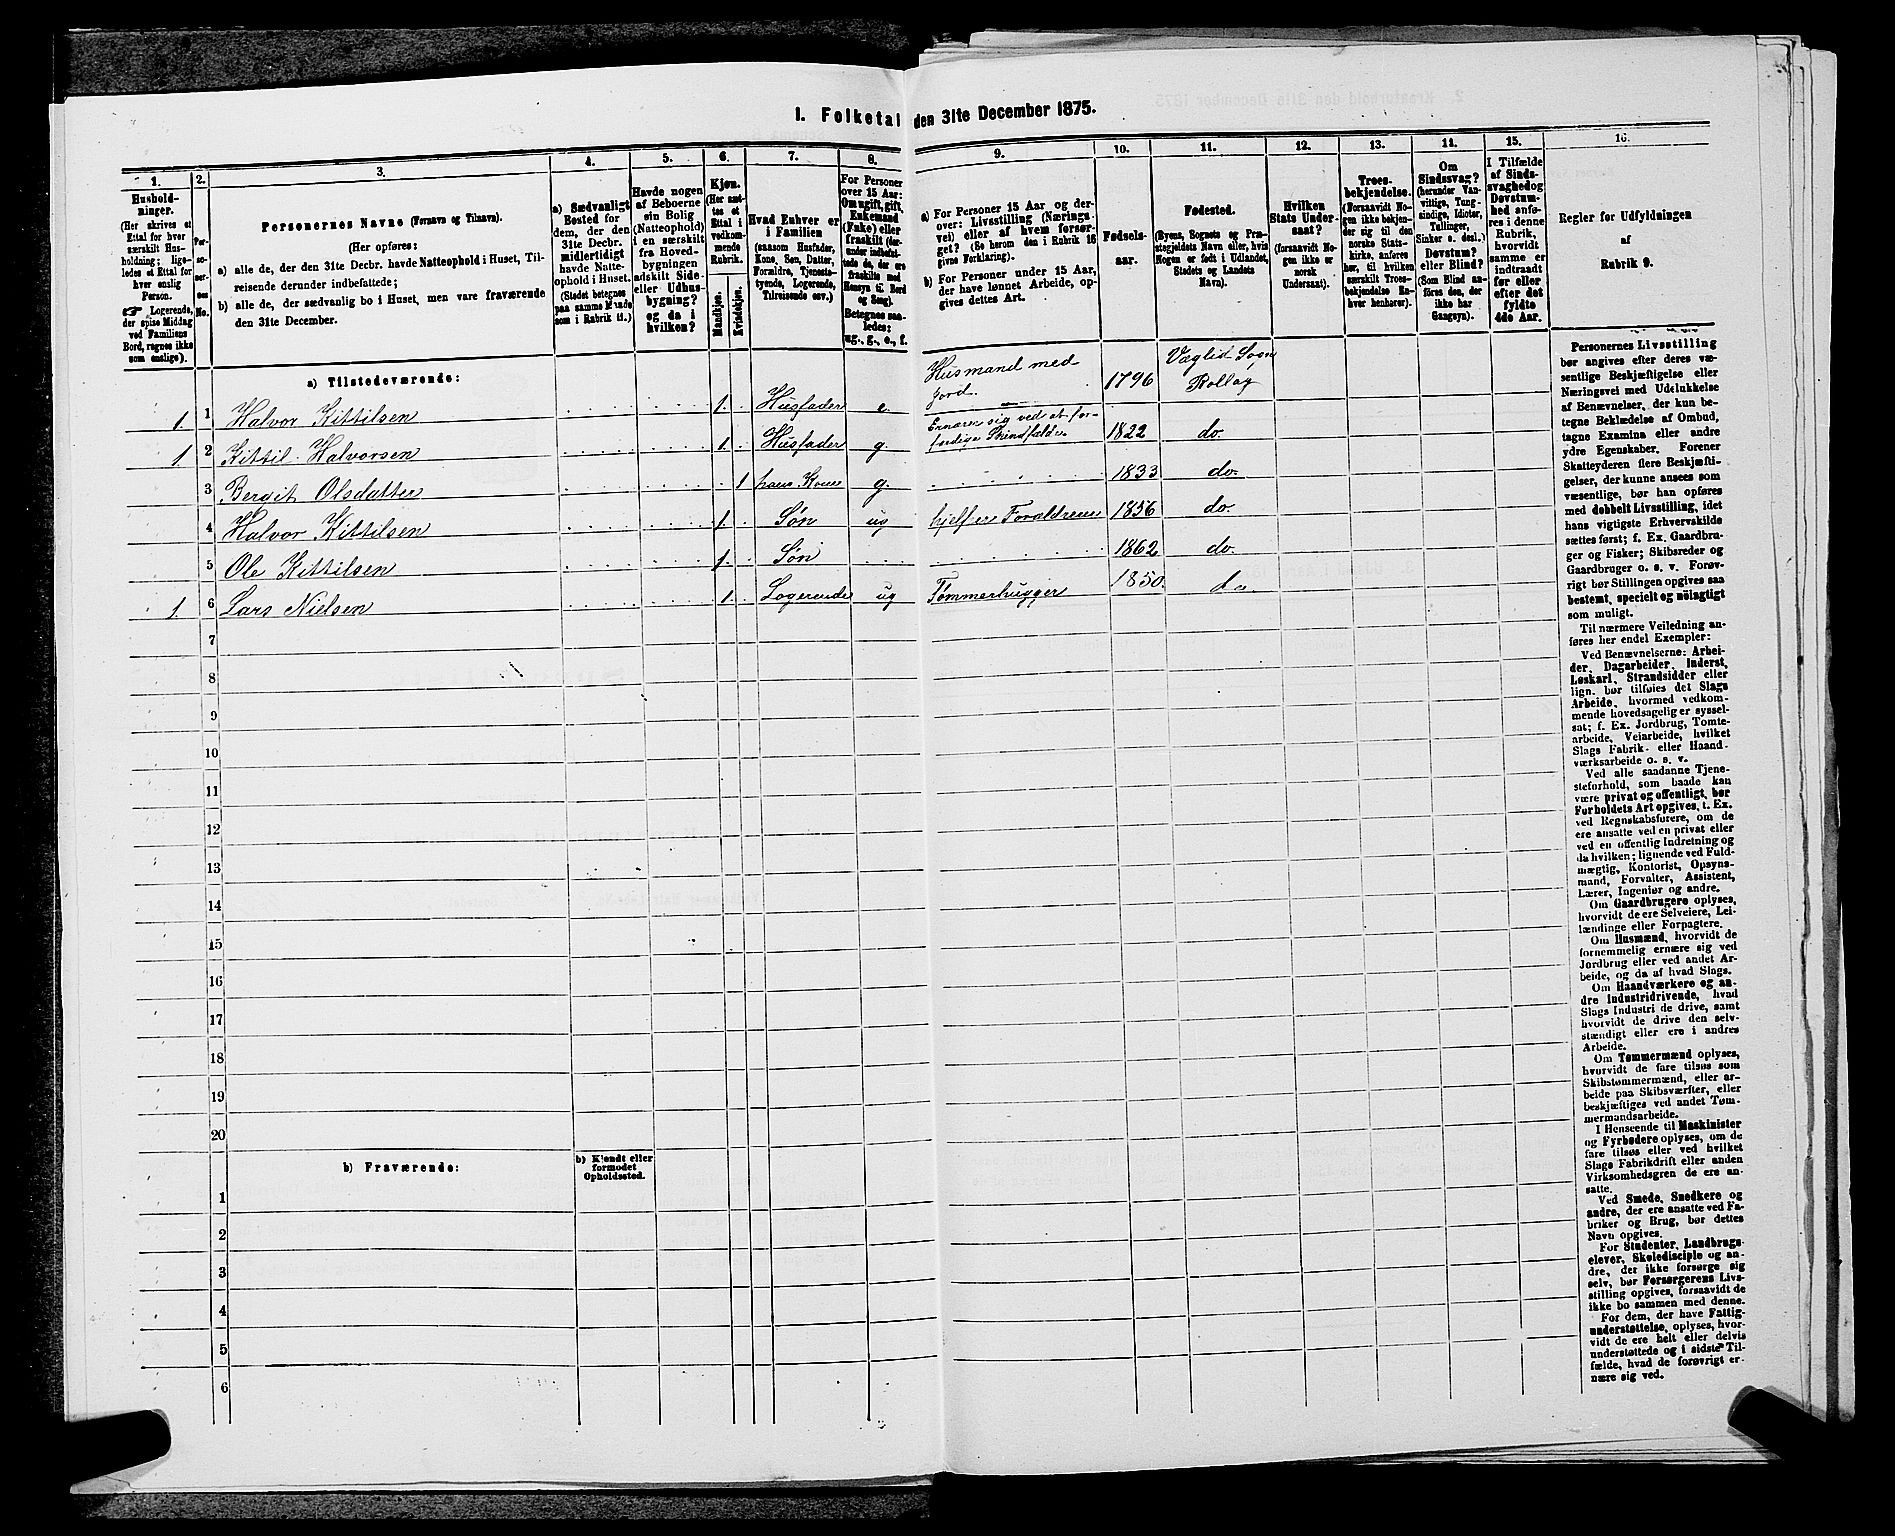 1. Folketal den 31te December 1875.
1. 2. 3. 4. 5. 6. 7. 8. 9. 10. 11. 12. 13. 14. 15. 16.
Hushold-
ninger.
(Her skrives et
Ettal for hver
særskilt Hus-
holdning; lige-
ledes et Ettal for
hver enslig
Person.
☞ Logerende,
der spise Middag
ved Familiens
Bord, regnes ikke
som enslige).
Per-
so-
ner-
nes
No.
Personernes Navne (Fornavn og Tilnavn).
(Her opføres:
a) alle de, der den 31te Decbr. havde Natteophold i Huset, Til-
reisende derunder indbefattede;
b) alle de, der sædvanlig bo i Huset, men vare fraværende
den 31te December.
a) Sædvanligt
Bosted for
dem, der den
31te Decbr.
midlertidigt
havde Natte-
ophold i Huset.
(Stedet betegnes
paa samme Maade
som i Rubrik 11.)
Havde nogen
af Beboerne
sin Bolig
(Natteophold)
i en særskilt
fra Hoved-
bygningen
adskilt Side-
eller Udhus-
bygning?
og da i
hvilken?
Kjøn.
(Her sæt-
tes et
Ettal i
vedkom-
mende
Rubrik.
Mandkjøn.
Kvindekjøn.
Hvad Enhver er
i Familien
(saasom Husfader,
Kone, Søn, Datter,
Forældre, Tjeneste-
tyende, Logerende,
Tilreisende osv.)
For Personer
over 15 Aar:
Om ugift, gift,
Enkemand
(Enke) eller
fraskilt (der-
under indbefat-
tede de, der ere
fraskilte med
Hensyn til Bord
og Seng).
Betegnes saa-
ledes:
ug., g., e., f.
a) For Personer 15 Aar og der-
over: Livsstilling (Nærings-
vei) eller af hvem forsør-
get? (Se herom den i Rubrik 16
givne Forklaring).
b) For Personer under 15 Aar,
der have lønnet Arbeide, op-
gives dettes Art.
Fødsels-
aar.
Fødested.
(Byens, Sognets og Præ-
stegjeldets Navn eller, hvis
Nogen er født i Udlandet,
Stedets og Landets
Navn).
Hvilken
Stats Under-
saat?
(forsaavidt No-
gen ikke er
norsk
Undersaat).
Troes-
bekjendelse.
(Forsaavidt No-
gen ikke bekjen-
der sig til den
norske Stats-
kirke, anføres
her, til hvilken
særskilt Troes-
bekjendelse En-
hver henhører).
Om
Sindssvag?
(herunder Van-
vittige, Tung-
sindige, Idioter,
Tullinger,
Sinker o. desl.)
Døvstum?
eller Blind?
(Som Blind an-
føres den, der
ikke har
Gangsyn).
I Tilfælde
af Sinds-
svaghed og
Døvstum-
hed anfø-
res i denne
Rubrik,
hvorvidt
samme er
indtraadt
før eller
efter det
fyldte
4de Aar.
Regler for Udfyldningen
af
Rubrik 9.
a) Tilstedeværende:
1. 1 Halvor Kittilsen 1. Husfader e. Husmand med Jord. 1796 Væglid Sogn Rollag
1. 2 Kittil Halvorsen 1. Husfader g. Ernærer sig ved at forfærdige Skindfælde 1822 do.
3 Bergit Olsdatter 1 hans Kone g. 1833 do.
4 Halvor Kittilsen 1. Søn ug hjelper Forældrene 1856 do.
5 Ole Kittilsen 1. Søn 1862 do.
1. 6 Lars Nielsen 1. Logerende ug Tømmerhugger 1850. do.
7
8
9
10
11
12
13
14
15
16
17
18
19
20
b) Fraværende:
b) Kjendt eller
formodet
Opholdssted.
1
2
3
4
5
6
Personernes Livsstilling
bør angives efter deres væ-
sentlige Beskjæftigelse eller
Næringsvei med Udelukkelse
af Benævnelser, der kun be-
tegne Beklædelse af Ombud,
tagne Examina eller andre
ydre Egenskaber. Forener
Skatteyderen flere Beskjæfti-
gelser, der kunne ansees som
væsentlige, bør han opføres
med dobbelt Livsstilling, idet
hans vigtigste Erhvervskilde
sættes først; f. Ex. Gaardbru-
ger og Fisker; Skibsreder og
Gaardbruger o. s. v. Forøv-
rigt bør Stillingen opgives saa
bestemt, specielt og nöiagtigt
som muligt.
Til nærmere Veiledning an-
føres her endel Exempler:
Ved Benævnelserne: Arbei-
der, Dagarbeider, Inderst,
Løskarl, Strandsidder eller
lign. bør tilføies det Slags
Arbeide, hvormed vedkom-
mende hovedsagelig er syssel-
sat; f. Ex. Jordbrug, Tomte-
arbeide, Veiarbeide, hvilket
Slags Fabrik- eller Haand-
værksarbeide o. s. v.
Ved alle saadanne Tjene-
steforhold, som baade kan
være privat og offentligt, bør
Forholdets Art opgives, t. Ex.
ved Regnskabsførere, om de
ere ansatte ved en privat eller
ved en offentlig Indretning og
da hvilken; lignende ved Fuld-
mægtig, Kontorist, Opsyns-
mand, Forvalter, Assistent,
Lærer, Ingeniør og andre.
Om Gaardbrugere oplyses,
hvorvidt de ere Selveiere, Lei-
lændinge eller Forpagtere.
Om Husmænd, hvorvidt de
fornemmelig ernære sig ved
Jordbrug eller ved andet Ar-
beide, og da af hvad Slags.
Om Haandværkere og an-
dre Industridrivende, hvad
Slags Industri de drive, samt
hvorvidt de drive den selv-
stændigt eller ere i andres
Arbeide.
Om Tømmermænd oplyses,
hvorvidt de fare tilsøs som
Skibstømmermænd, eller ar-
beide paa Skibsværfter, eller
beskjæftiges ved andet Tøm-
mermandsarbeide.
I Henseende til Maskinister
og Fyrbødere oplyses, om de
fare tilsøs eller ved hvilket
Slags Fabrikdrift eller anden
Virksomhedsgren de ere an-
satte.
Ved Smede, Snedkere og
andre, der ere ansatte ved Fa-
briker og Brug, bør dettes
Navn opgives.
For Studenter, Landbrugs-
elever, Skoledisciple og an-
dre, der ikke forsørge sig
selv, bør Forsørgerens Livs-
stilling opgives, forsaavidt de
ikke bo sammen med denne.
For dem, der have Fattig-
understøttelse, oplyses, hvor-
vidt de ere helt eller delvis
understøttede og i sidste Til-
fælde, hvad de forøvrigt er-
nære sig ved.